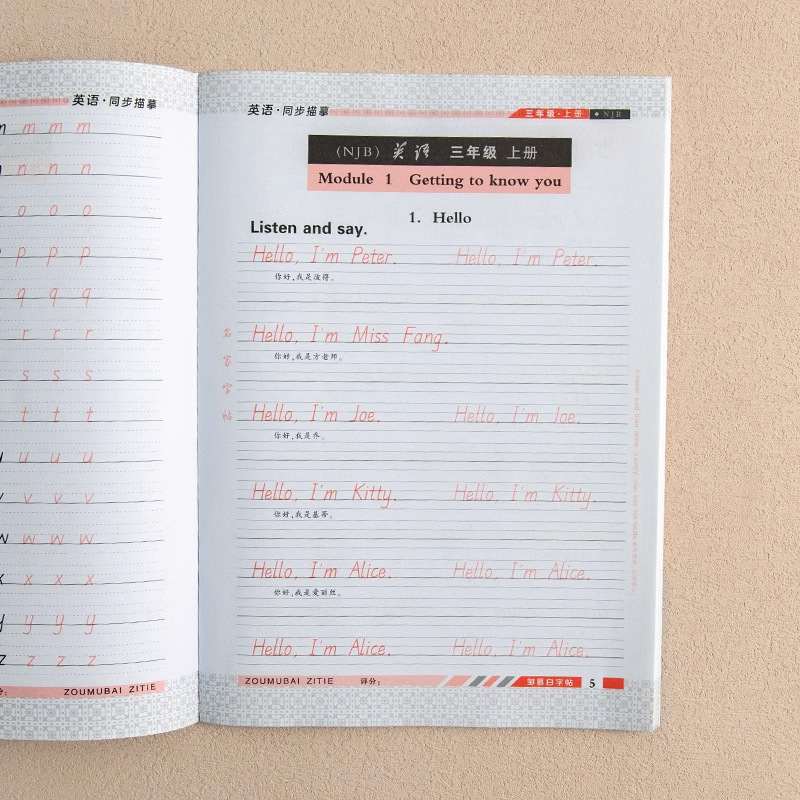 英语·同步描摹
m m m
n n n
o o o
p p p
q q q
r r r
s s s
t t t
u u u
v v v
w w w
x x x
y y y
z z z
ZOUMUBAI ZITIE
英语·同步描摹
三年级·上册 ◆ NJB
(NJB) 英语 三年级 上册
Module 1 Getting to know you
1. Hello
Listen and say.
Hello, I'm Peter. Hello, I'm Peter.
你好,我是彼得。
Hello, I'm Miss Fang.
你好,我是方老师。
Hello, I'm Joe. Hello, I'm Joe.
你好,我是乔。
Hello, I'm Kitty. Hello, I'm Kitty.
你好,我是基蒂。
Hello, I'm Alice. Hello, I'm Alice.
你好,我是爱丽丝。
Hello, I'm Alice. Hello, I'm Alice.
名家字帖
ZOUMUBAI ZITIE 评分: 邹慕白字帖 5